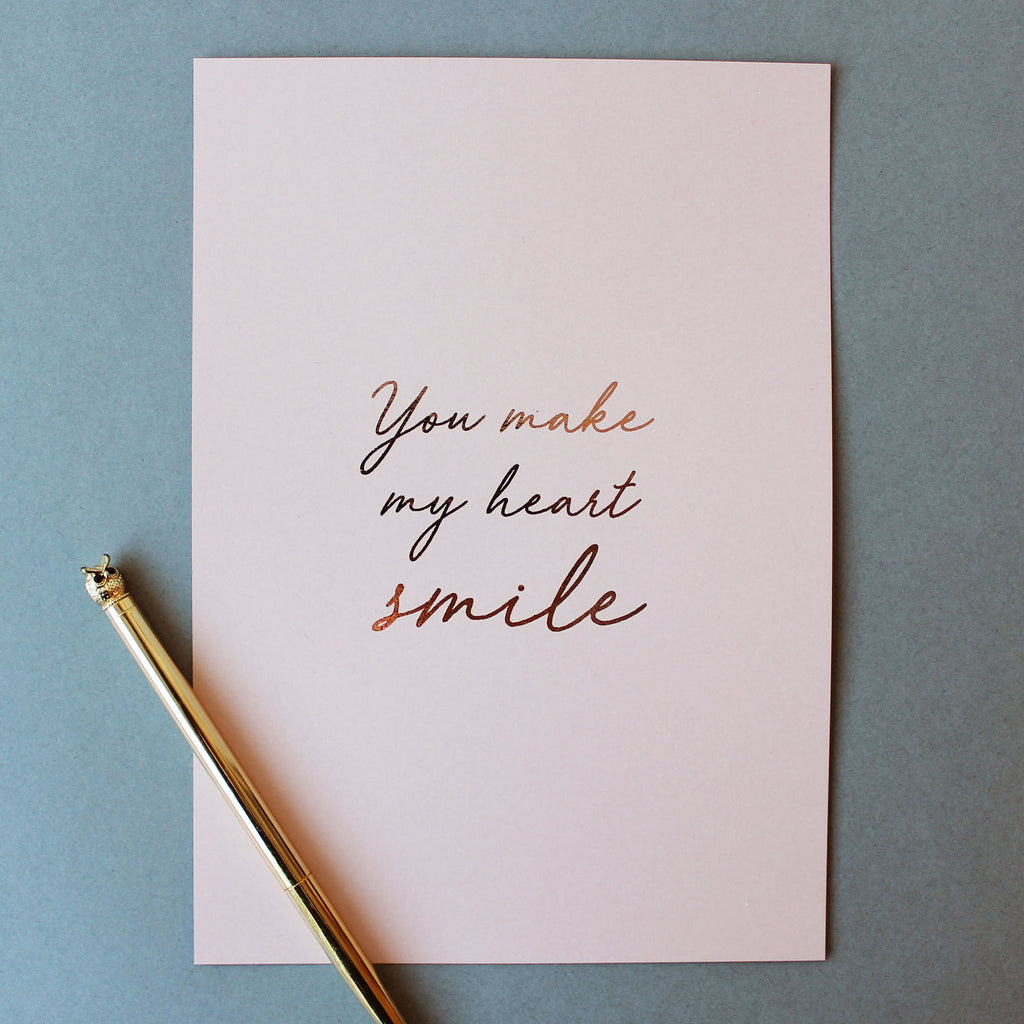 You make
my heart
smile